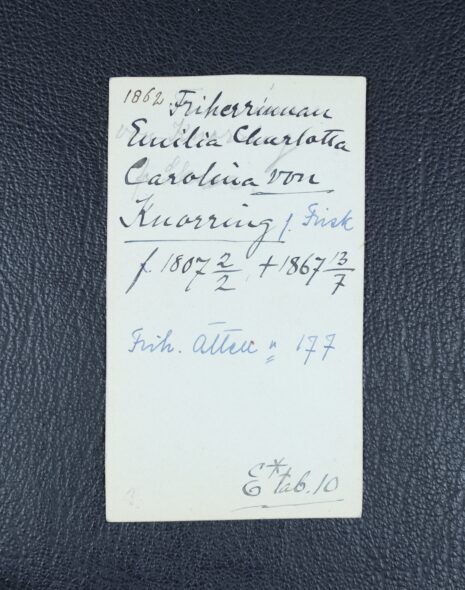 1862 Friherrinnan
Emilia Charlotta
Carolina von
Knorring f. Frisk
f 1807 2/2, + 1867 13/7
Frih. Ätten " 177
E* tab. 10